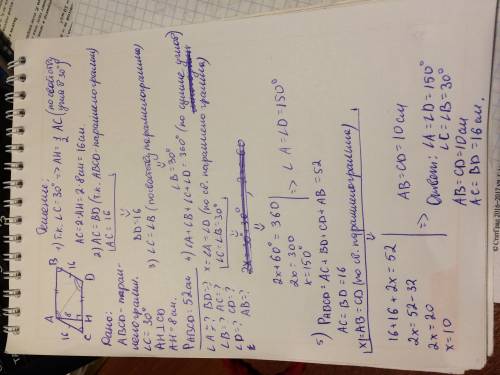 A
B
16
8
16
C
H
D
Дано:
ABCD - парал-
лелограмм.
∠C = 30°
AH⊥CD
AH = 8см.
P ABCD = 52см
∠A = ? BD = ?
∠B = ? AC = ?
∠C = ? CD = ?
∠D = ? AB = ?
Решение:
1) т.к. ∠C = 30° => AH = 1/2 AC (по свойству
угла в 30°)
AC = 2·AH = 2·8см = 16см.
2) AC = BD (т.к. ABCD - параллелограмм)
AC = 16
BD = 16
3) ∠C = ∠B (по свойству параллелограмма)
∠B = 30°
4) ∠A + ∠B + ∠C + ∠D = 360° (по сумме углов)
x = ∠A = ∠D (по св. параллелограмма)
∠C = ∠B = 30°
2x + 60° = 360
2x = 300
x = 150°
=> ∠A = ∠D = 150°
5) P ABCD = AC + BD + CD + AB = 52
AC = BD = 16
x = AB = CD (по св. параллелограмма)
16 + 16 + 2x = 52
2x = 52 - 32
2x = 20
x = 10
=> AB = CD = 10см
Ответ: ∠A = ∠D = 150°
∠C = ∠B = 30°
AB = CD = 10см
AC = BD = 16см